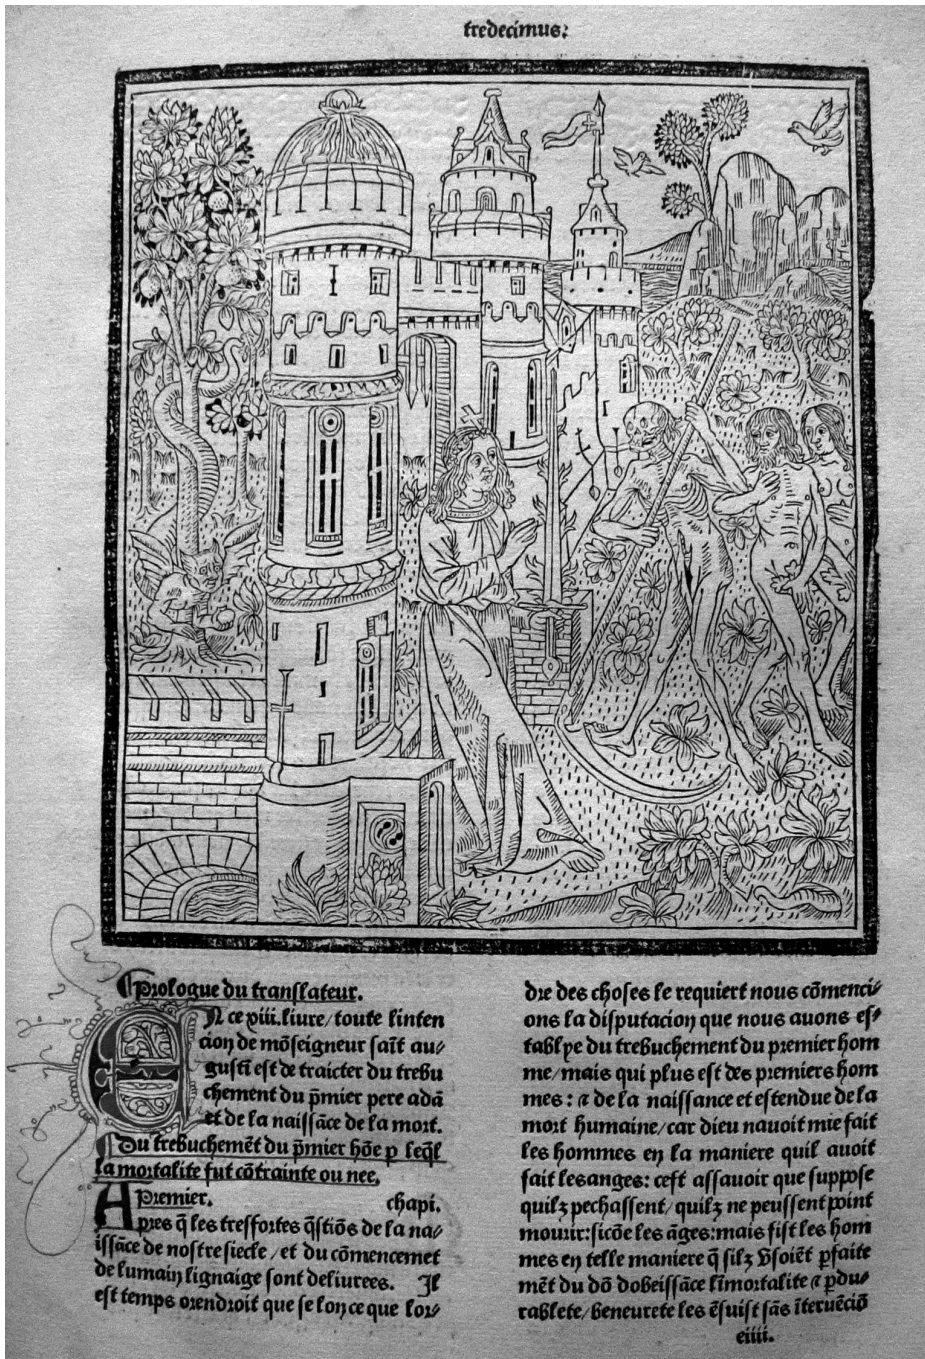 tredecimus:
Prologue du translateur.
EN ce xiii. liure/ toute linten
cion de mõseigneur saĩt au⸗
gustĩ est de traicter du trebu
chement du p̃mier pere adã
et de la naissãce de la mort.
Du trebuchemẽt du p̃mier hõe p̱ leq̃l
la mortalite fut cõtrainte ou nee.
Premier. chapi.
Apres q̃ les tresfortes q̃stiõs de la na⸗
issãce de nostre siecle/ et du cõmencemet
de lumain lignaige sont deliurees. Il
est temps orendroit que selonce que lor⸗
dre des choses le requiert nous cõmenci⸗
ons la disputacion que nous auons es⸗
tablye du trebuchement du premier hom
me/ mais qui plus est des premiers hom
mes: ⁊ de la naissance et estendue de la
mort humaine/ car dieu nauoit mie fait
les hommes en la maniere quil auoit
fait les anges: cest assauoir que suppose
quilz pechassent/ quilz ne peussent point
mourir: sicõe les ãges: mais fist les hom
mes en telle maniere q̃ silz vsoiẽt p̱faite
mẽt du dõ dobeissãce lĩmortalite ⁊ p̱du⸗
rablete/ beneurete les ẽsuist sãs ĩteruẽciõ
eiiii.